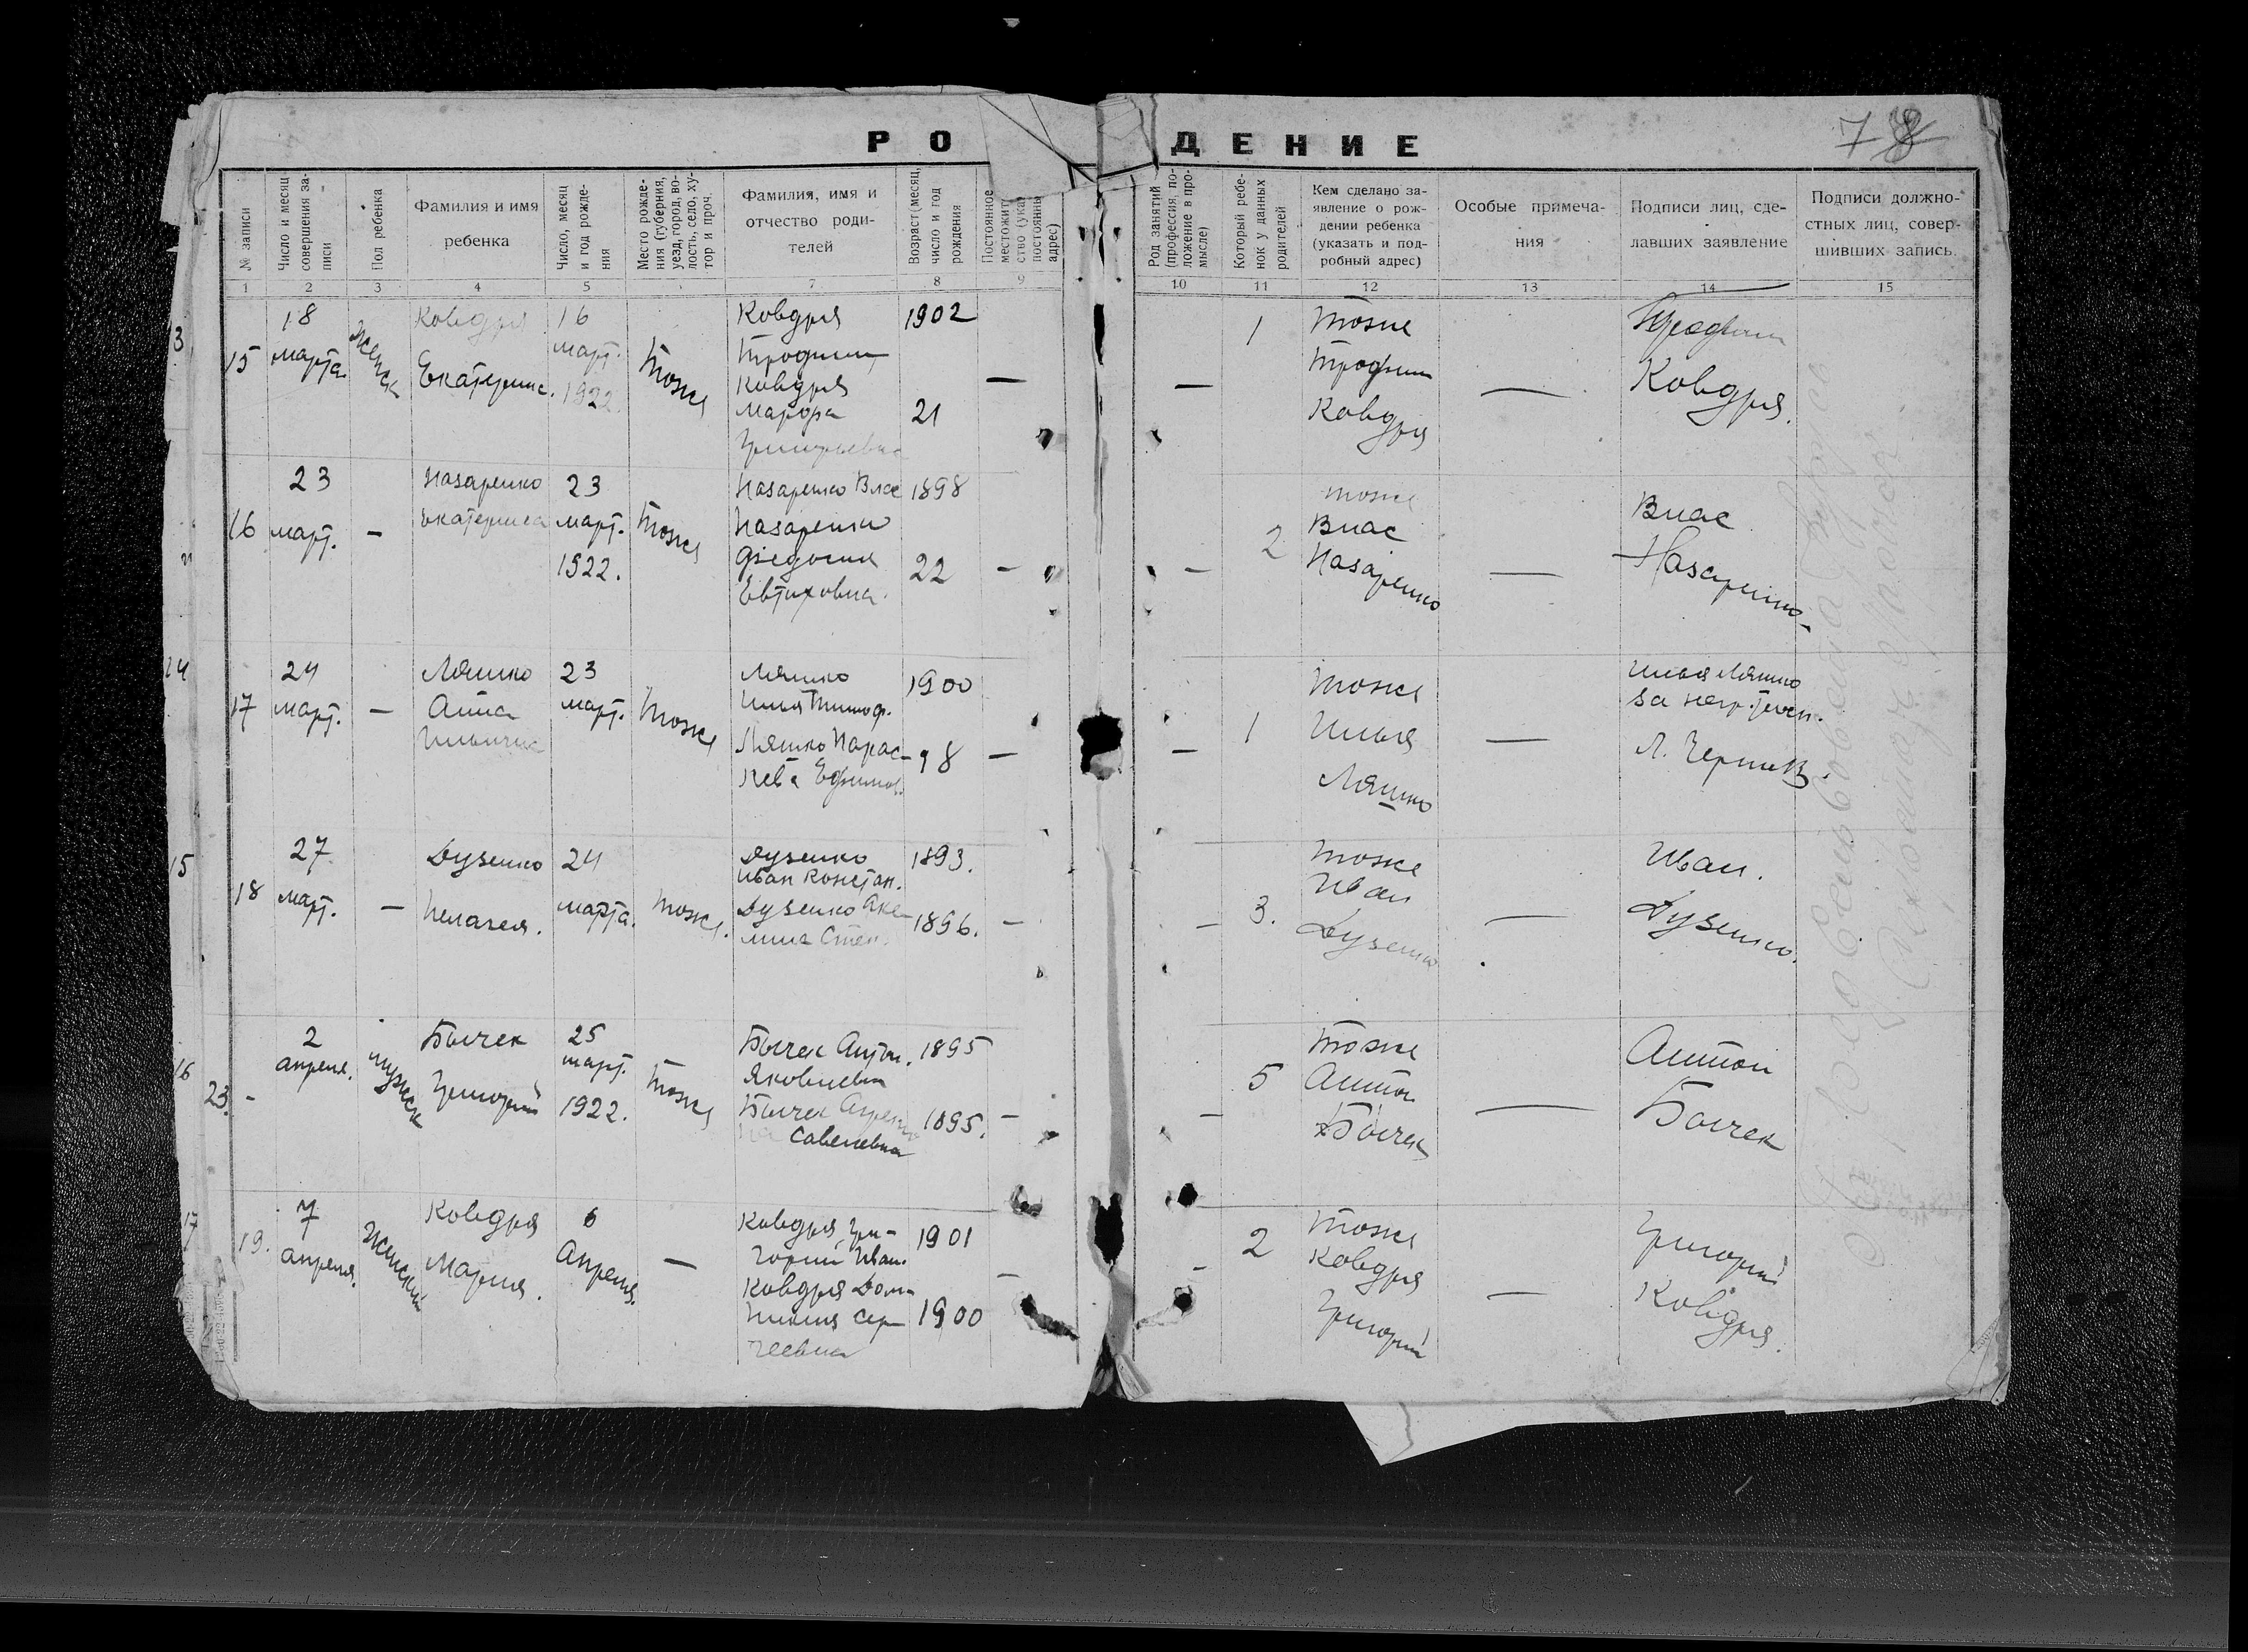 РО ДЕНИЕ
78
№ записи
Число и месяц совершения записи
Пол ребенка
Фамилия и имя
ребенка
Число, месяц и год рождения
Место рождения (губерния, уезд, город, волость, село, хутор и проч.
Фамилия, имя и
отчество роди-
телей
Возраст (месяц, число и год рождения
Постоянное
местожит
ство (ука
постоянны
адрес)
Род занятий (профессия, положение в промысле)
Который ребенок у данных родителей
Кем сделано за-
явление о рож-
дении ребенка
(указать и под-
робный адрес)
Особые примеча-
ния
Подписи лиц, сде-
лавших заявление
Подписи должно-
стных лиц, совер-
шивших запись.
1 2 3 4 5 7 8 9 10 11 12 13 14 15
3
15
18
марта
женск
Ковдря
Екатерина.
16
март.
1922.
Тоже
Ковдря
Трофим
Ковдря
Марфа
Григорьевна
1902
21
—
—
1
Тоже
Трофим
Ковдря
—
Трофим
Ковдря.
16
23
март.
—
Назаренко
Екатерина
23
март.
1922.
Тоже
Назаренко Влас
Назаренко
Федосия
Евтиховна.
1898
22
—
—
2
тоже
Влас
Назаренко
—
Влас
Назаренко
14
17
24
март.
—
Ляшко
Анна
Ильична
23
март.
Тоже
Ляшко
Илья Тимоф.
Ляшко Парас-
кева Ефимов.
1900
98
—
—
1
Тоже
Илья
Ляшко
—
Илья Ляшко
за негр.
Л.
15
18
27
март.
—
Дузенко
Пелагея.
24
марта.
Тоже.
Дузенко
Иван Констан.
Дузенко Аке-
лина Степ.
1893.
1896.
—
—
3.
Тоже
Иван
Дузенко
—
Иван.
Дузенко.
16
23. -
2
апреля.
мужск
Бычек
Григорий
25
март.
1922.
Тоже
Бычек Антон.
Яковлевич
Бычек
Савелевна
1895
1895.
—
—
5
Тоже
Антон
Бычек
—
Антон
Бычек
17
19.
7
апреля.
Женский
Ковдря
Мария.
6
Апреля.
—
Ковдря Гри-
горий Иван.
Ковдря Дом-
никия Сер-
геевна
1901
1900
—
—
2
Тоже
Ковдря
Григорий
—
Григорий
Ковдря.